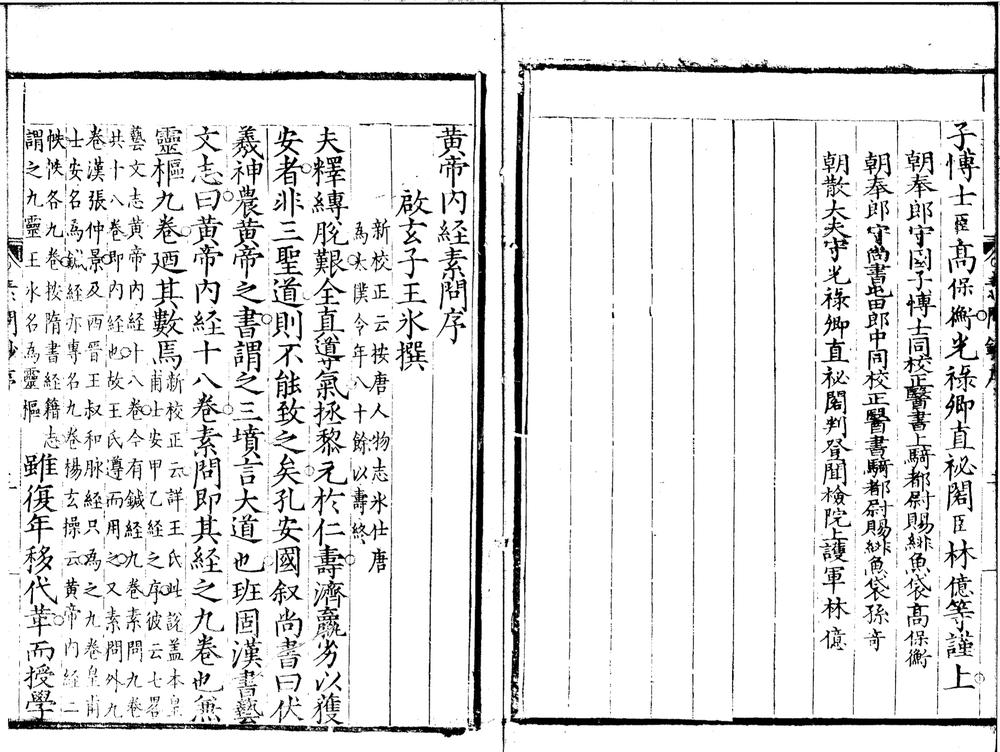 子博士臣高保衡光祿卿直祕閣臣林億等謹上
朝奉郎守國子博士同校正醫書上騎都尉賜緋魚袋高保衡
朝奉郎守尚書屯田郎中同校正醫書騎都尉賜緋魚袋孫奇
朝散大夫守光祿卿直祕閣判登聞檢院上護軍林億
黃帝內経素問序
啟玄子王氷撰
新校正云按唐人物志氷仕唐
為太僕令年八十餘以壽終
夫釋縛脫艱全真導氣拯黎元於仁壽濟羸劣以獲
安者非三聖道則不能致之矣孔安國叙尚書曰伏
羲神農黃帝之書謂之三墳言大道也班固漢書藝
文志曰黃帝內経十八卷素問即其経之九卷也兼
靈樞九卷廼其數焉
新校正云詳王氏此說蓋本皇
甫士安甲乙経之序彼云七畧
藝文志黃帝內経十八卷今有鍼経九卷素問九卷
共十八卷即內経也故王氏遵而用之又素問外九
卷漢張仲景及西晉王叔和脉経只為之九卷皇甫
士安名為鍼経亦專名九卷楊玄操云黃帝內経二
帙帙各九卷按隋書経籍志
謂之九靈王氷名為靈樞
雖復年移代革而授學